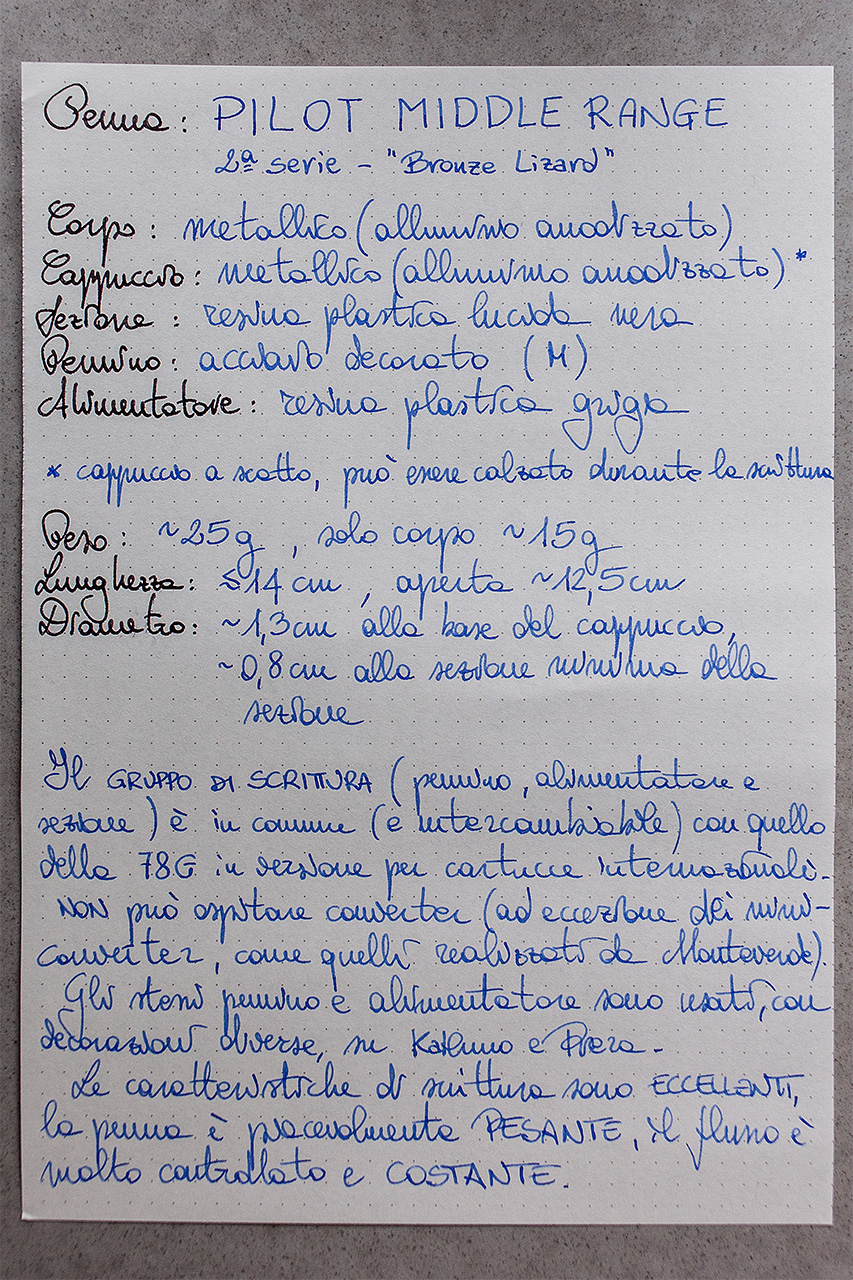 Penna: PILOT MIDDLE RANGE
2ª serie - "Bronze Lizard"
Corpo: metallico (alluminio anodizzato)
Cappuccio: metallico (alluminio anodizzato)*
Sezione: resina plastica lucida nera
Pennino: acciaio decorato (M)
Alimentatore: resina plastica grigia
* cappuccio a scatto, può essere calzato durante la scrittura
Peso: ~25g, solo corpo ~15g
Lunghezza: ≤14 cm, aperta ~12,5cm
Diametro: ~1,3cm alla base del cappuccio,
~0,8cm alla sezione minima della
sezione
Il GRUPPO DI SCRITTURA (pennino, alimentatore e
sezione) è in comune (e intercambiabile) con quello
della 78G in versione per cartucce internazionali.
NON può ospitare converter (ad eccezione dei mini-
converter, come quelli realizzati da Monteverde).
Gli stessi pennino e alimentatore sono usati, con
decorazioni diverse, su Kakuno e Prera.
Le caratteristiche di scrittura sono ECCELLENTI,
la penna è piacevolmente PESANTE, il flusso è
molto controllato e COSTANTE.